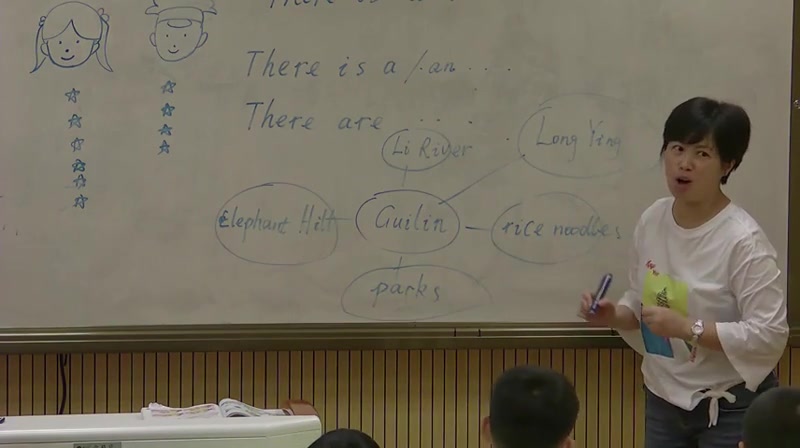 There is a
There is a / an ...
There are ...
Li River
Long Ying
Elephant Hill
Guilin
rice noodles
parks